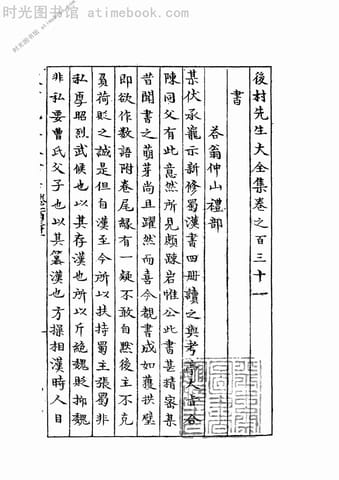 时光图书馆 - atimebook.com
後村先生大全集卷之百三十一
書
答翁仲山禮部
某伏承寵示新修蜀漢書四冊讀之與考亭大旨合
陳同父有此意然所見頗踈岩惟公此書甚精密某
昔聞書之萌芽尚且躍然而喜今覩書成如獲拱璧
即欲作數語附卷尾緣有一疑不敢自默後主不克
負荷貶之誠是但自漢至今所以扶持蜀主張蜀非
私厚昭烈武侯也以其存漢也所以斥絶魏貶抑魏
非私要曹氏父子也以其簒漢也方操相漢時人目
时光图书馆
atimebook.com